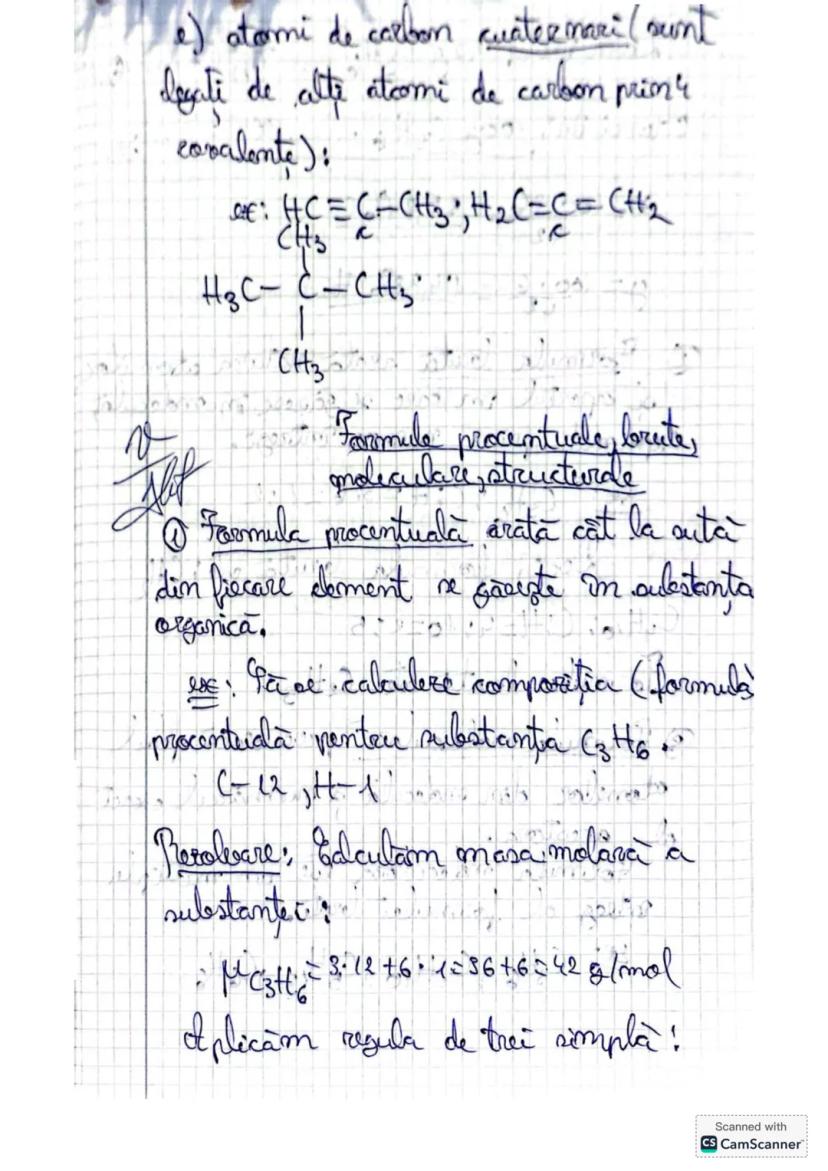 e) atomi de carbon cuaternari (sunt
legați de alți atomi de carbon prin 4
covalențe):
ex: HC≡C-CH₃; H₂C=C=CH₂
CH₃ c c
|
H₃C-C-CH₃
|
CH₃
Formule procentuale, brute,
moleculare, structurale
① Formula procentuală arată cât la sută
din fiecare element se găsește în substanța
organică.
ex: Să se calculeze compoziția (formula)
procentuală pentru substanța C₃H₆.
C-12, H-1
Rezolvare: Calculăm masa molară a
substanței:
μC₃H₆=3·12+6·1=36+6=42 g/mol
Aplicăm regula de trei simplă:
Scanned with
CS CamScanner